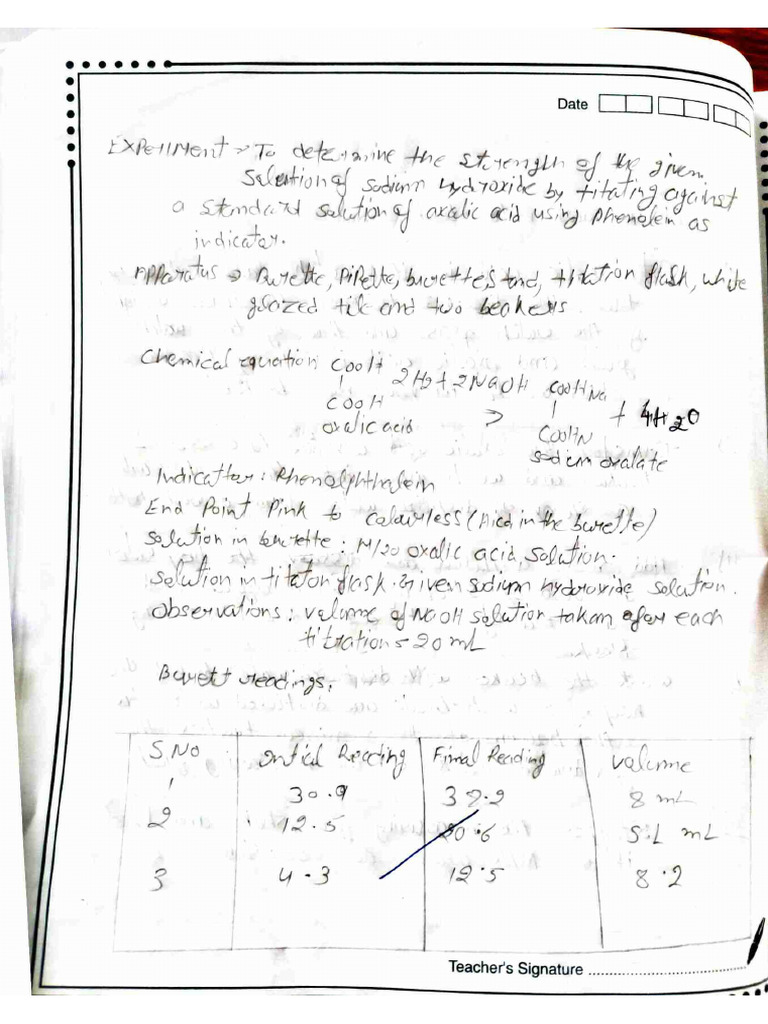 Date
Experiment → To determine the strength of the given
solution of sodium hydroxide by titating against
a standard solution of oxalic acid using phenolein as
indicator.
Apparatus → Burette, Pipette, burette stand, titration flask, white
glazed tile and two beakers
Chemical equation COOH 2H2+2NaOH COOHNa
COOH → COOHN + 4H2O
oxalic acid sodium oxalate
Indicattor: Phenolphthalein
End Point Pink to colourless (Acid in the burette)
solution in burette: M/20 oxalic acid solution.
solution in titator flask. Given sodium hydroxide solution.
Observations: volume of NaOH solution takan after each
titration = 20 mL
Burett readings.
S.NO Intial Reading Final Reading Valume
1 30.9 39.2 8 mL
2 12.5 20.6 mL
3 4.3 12.5 8.2
Teacher's Signature